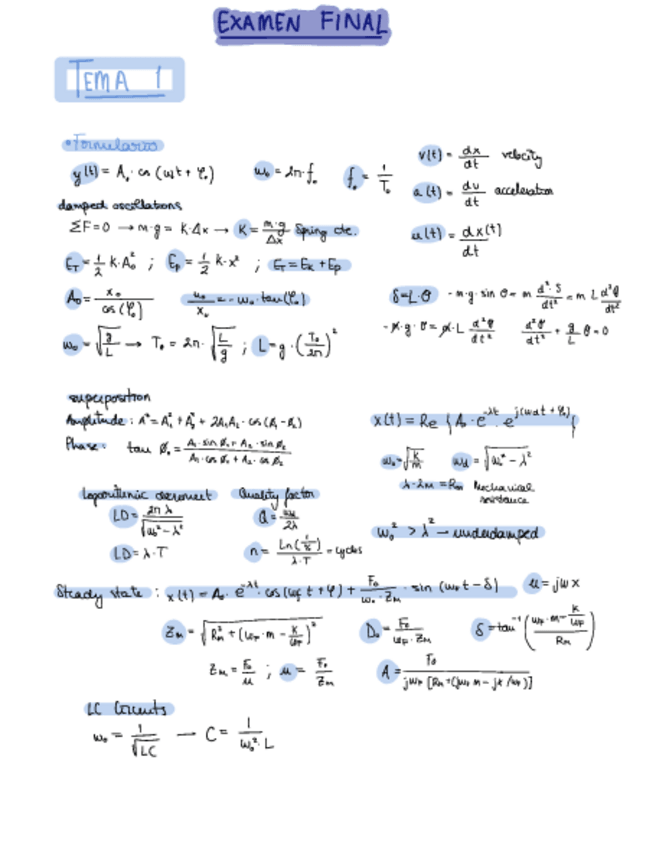 EXAMEN FINAL
TEMA 1
• Formulario
y(t) = A₀ · cos (ωt + φ₀)   ω₀ = 2π·f₀   f₀ = 1/T₀
v(t) = dx/dt velocity
a(t) = dv/dt acceleration
u(t) = dx(t)/dt
damped oscillations
ΣF=0 → m·g = K·Δx → K = m·g/Δx Spring cte.
E_T = 1/2 K·A₀² ; E_p = 1/2 K·x² ; E_T = E_K + E_p
A₀ = x₀/cos(φ₀)   u₀/x₀ = -ω₀·tan(φ₀)
δ=L·θ   -m·g·sin θ = m d²·S/dt² = m L d²θ/dt²
-m·g·θ = m·L d²θ/dt²   d²θ/dt² + g/L θ = 0
ω₀ = √(g/L) → T₀ = 2π·√(L/g) ; L = g·(T₀/2π)²
superposition
Amplitude : A² = A₁² + A₂² + 2A₁A₂ · cos (ϕ₁ - ϕ₂)
Phase : tan ϕ₀ = (A₁·sin ϕ₁ + A₂·sin ϕ₂)/(A₁·cos ϕ₁ + A₂·cos ϕ₂)
x(t) = Re { A₀ · e^(-λt) · e^(j(ωd t + φ₀)) }
ω₀ = √(K/m)   ωd = √(ω₀² - λ²)
λ·2m = Rm Mechanical resistance
Logarithmic decrement   Quality factor
LD = 2π λ/√(ω₀² - λ²)   Q = ω₀/2λ
LD = λ·T   n = Ln(1/%)/λ·T = cycles
ω₀² > λ² — underdamped
Steady state : x(t) = A₀· e^(-λt) · cos (ωf t + φ) + F₀/(ω₀·Zm) · sin (ωF t - δ)   u = jωx
Zm = √(Rm² + (ωF·m - K/ωF)²)   D₀ = F₀/(ωF·Zm)   δ = tan⁻¹ ((ωF·m - K/ωF)/Rm)
Zm = F₀/u ; u = F₀/Zm   A = F₀/(jωF [Rm + (jωF m - jK/ωF)])
LC Circuits
ω₀ = 1/√LC — C = 1/(ω₀²·L)